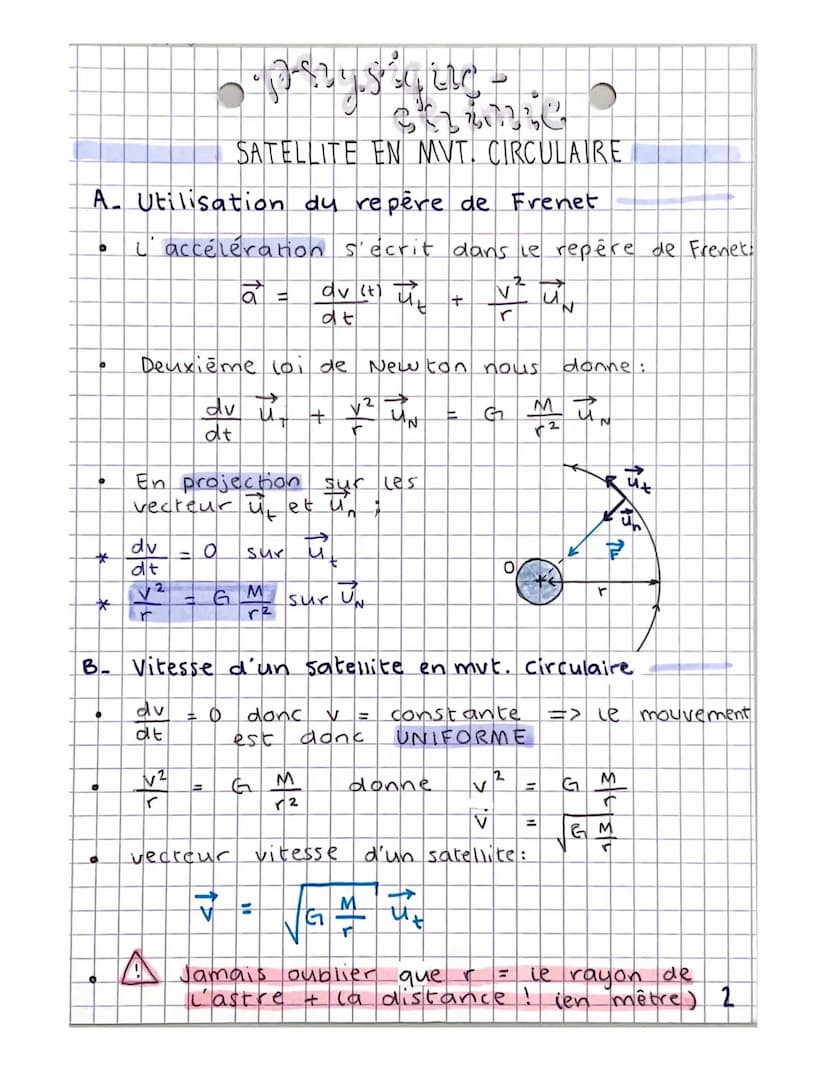 physique-
chimie
SATELLITE EN MVT. CIRCULAIRE
A- Utilisation du repère de Frenet
• L'accélération s'écrit dans le repère de Frenet:
a⃗ = dv(t)/dt u⃗t + v²/r u⃗N
• Deuxième loi de Newton nous donne :
dv/dt u⃗T + v²/r u⃗N = G M/r² u⃗N
• En projection sur les
vecteur u⃗t et u⃗n ;
* dv/dt = 0 sur u⃗t
* v²/r = G M/r² sur U⃗N
u⃗t
u⃗n
F⃗
O
r
B- Vitesse d'un satellite en mvt. circulaire
• dv/dt = 0 donc v = constante => le mouvement
est donc UNIFORME
• v²/r = G M/r² donne v² = G M/r
v = √(G M/r)
• vecteur vitesse d'un satellite:
v⃗ = √(G M/r) u⃗t
• ⚠ Jamais oublier que r = le rayon de
L'astre + la distance ! (en mètre) 2